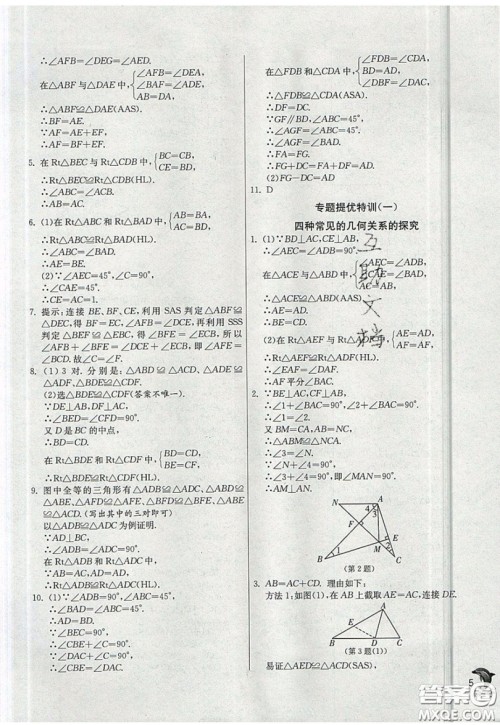 ∴∠AFB=∠DEG=∠AED.
在△ABF与△DAE中,{∠AFB=∠DEA, ∠BAF=∠ADE, AB=DA,
∴△ABF≌△DAE(AAS).
∴BF=AE.
∵AF=AE+EF,
∴AF=BF+EF.
5. 在Rt△BEC与Rt△CDB中,{BC=CB, CE=BD,
∴Rt△BEC≌Rt△CDB(HL).
∴∠ABC=∠ACB.
∴AB=AC.
6. (1)在Rt△ABC和Rt△BAD中,{AB=BA, AC=BD,
∴Rt△ABC≌Rt△BAD(HL).
∴AE=BE.
(2)∵∠AEC=45°,∠C=90°,
∴∠CAE=45°.
∴CE=AC=1.
7. 提示:连接BE、BF,利用SAS判定△ABF≌
△DEC,得BF=EC,∠ABF=∠DEC,再利用SSS
判定△BFE≌△ECB,得∠BFE=∠ECB,所以
∠AFB+∠BFE=∠DCE+∠ECB,即∠AFE=
∠BCD.故∠C=∠F.
8. (1)3对.分别是:△ABD≌△ACD,△ADE≌
△ADF,△BDE≌△CDF.
(2)选△BDE≌△CDF(答案不唯一).
∵DE⊥AB,DF⊥AC,
∴∠BED=∠CFD=90°.
又D是BC的中点,
∴BD=CD.
在Rt△BDE和Rt△CDF中,{BD=CD, BE=CF,
∴Rt△BDE≌Rt△CDF(HL).
9. 图中全等的三角形有△ADB≌△ADC、△ABE≌
△ABE、△AFD≌△AFE、△BDE≌△BDE、△ABE
≌△ACE.(写出其中的三对即可)
以△ADB≌△ADC为例证明.
∵AD⊥BC,
∴∠ADB=∠ADC=90°.
在Rt△ADB和Rt△ADC中,
∵AB=AC,AD=AD,
∴Rt△ADB≌Rt△ADC(HL).
10. (1)∵∠ADB=90°,∠ABC=45°,
∴∠BAD=∠ABC=45°.
∴AD=BD.
∵∠BEC=90°,
∴∠CBE+∠C=90°.
∵∠DAC+∠C=90°,
∴∠CBE=∠DAC.
在△FDB和△CDA中,{∠FDB=∠CDA, BD=AD, ∠DBF=∠DAC,
∴△FDB≌△CDA(ASA).
∴DF=DC.
∵GF∥BD,
∴∠AGF=∠ABC=45°.
∴∠AGF=∠BAD.
∴FA=FG.
∴FG+DC=FA+DF=AD.
(2)FG-DC=AD
11. D
专题提优特训(一)
四种常见的几何关系的探究
1. (1)∵BD⊥AC,CE⊥AB,
∴∠ADB=∠AEC=90°.
在△ACE与△ABD中,{∠AEC=∠ADB, ∠CAE=∠BAD, AC=AB,
∴△ACE≌△ABD(AAS).
∴AE=AD.
(2)在Rt△AEF与Rt△ADF中,{AE=AD, AF=AF,
∴Rt△AEF≌Rt△ADF(HL).
∴∠EAF=∠DAF.
∴AF平分∠BAC.
2. ∵BE⊥AC,CF⊥AB,
∴∠1+∠BAC=90°,∠2+∠BAC=90°.
∴∠1=∠2.
又BM=CA,AB=NC,
∴△ABM≌△NCA.
∴∠3=∠N.
∵∠N+∠4=90°,
∴∠3+∠4=90°.
∴AM⊥AN.
N A 4 3 F E M 1 2 B C
(第2题)
3. AB=AC+CD. 理由如下:
方法1:如图(1),在AB上截取AE=AC,连接DE.
A E B D C
(第3题(1))
易证△AED≌△ACD(SAS),
5
答案圈
MXQE.COM